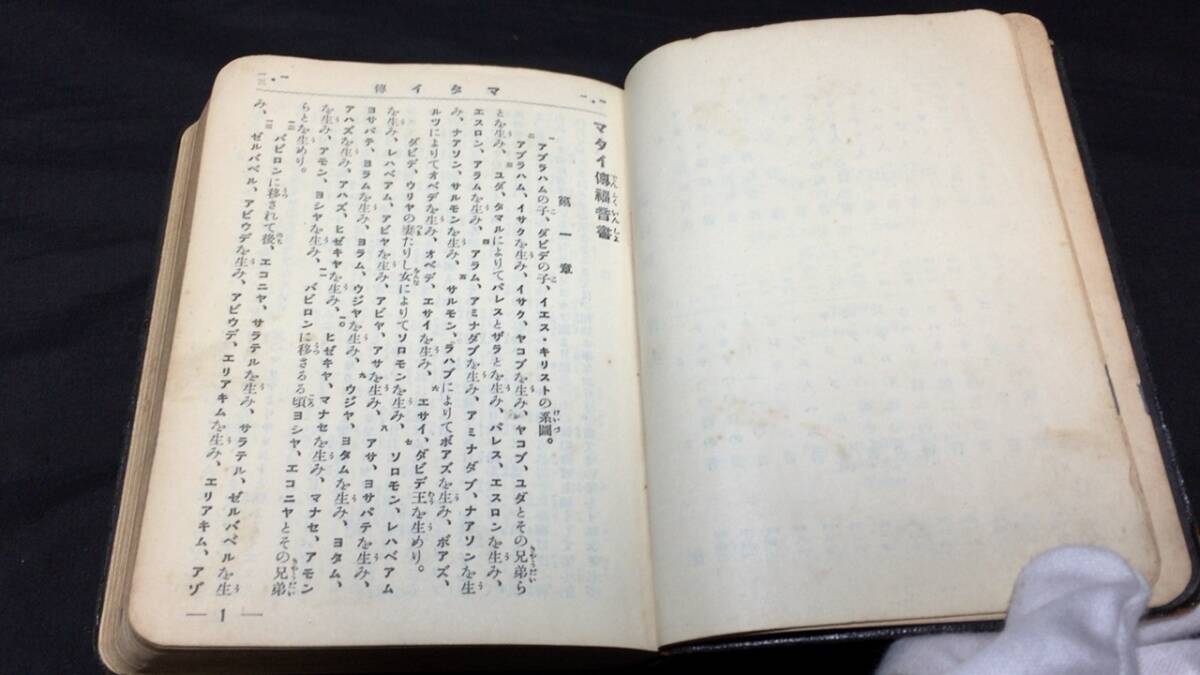 マタイ傳
マタイ傳福音書
第一章
一 アブラハムの子、ダビデの子、イエス・キリストの系圖。
二 アブラハム、イサクを生み、イサク、ヤコブを生み、ヤコブ、ユダとその兄弟ら
とを生み、三 ユダ、タマルによりてパレスとザラとを生み、パレス、エスロンを生み、
エスロン、アラムを生み、四 アラム、アミナダブを生み、アミナダブ、ナアソンを生
み、ナアソン、サルモンを生み、五 サルモン、ラハブによりてボアズを生み、ボアズ、
ルツによりてオベデを生み、オベデ、エサイを生み、六 エサイ、ダビデ王を生めり。
ダビデ、ウリヤの妻たりし女によりてソロモンを生み、七 ソロモン、レハベアム
を生み、レハベアム、アビヤを生み、アビヤ、アサを生み、八 アサ、ヨサパテを生み、
ヨサパテ、ヨラムを生み、ヨラム、ウジヤを生み、九 ウジヤ、ヨタムを生み、ヨタム、
アハズを生み、アハズ、ヒゼキヤを生み、一〇 ヒゼキヤ、マナセを生み、マナセ、アモン
を生み、アモン、ヨシヤを生み、一一 バビロンに移さるる頃ヨシヤ、エコニヤとその兄弟
らとを生めり。
一二 バビロンに移されて後、エコニヤ、サラテルを生み、サラテル、ゼルバベルを生
み、一三 ゼルバベル、アビウデを生み、アビウデ、エリアキムを生み、エリアキム、アゾ
— 1 —